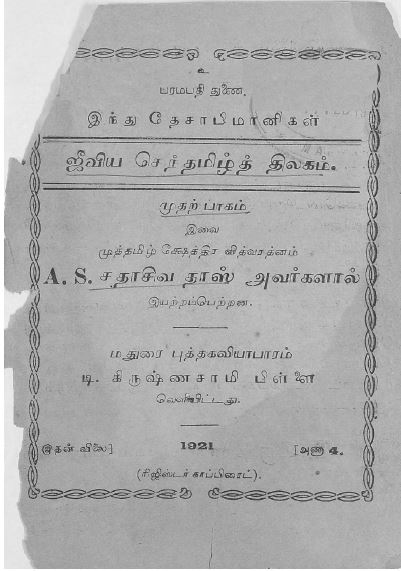 உ
பரமபதி துணை.
இந்து தேசாபிமானிகள்
ஜீவிய செந்தமிழ்த் திலகம்.
முதற் பாகம்
இவை
முத்தமிழ் க்ஷேத்திர வித்வரத்னம்
A. S. சதாசிவ தாஸ் அவர்களால்
இயற்றப்பெற்றன.
மதுரை புத்தகவியாபாரம்
டி. கிருஷ்ணசாமி பிள்ளை
வெளியிட்டது.
இதன் விலை] 1921 [அணா 4.
(ரிஜிஸ்டர் காப்பிரைட்).